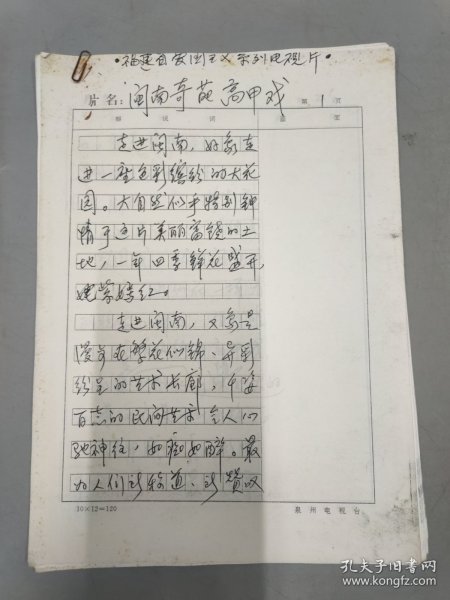 ·福建自爱国主义系列电视片·
片名：闽南奇葩高甲戏 第1页
解说词 画面
走进闽南，好象走
进一座色彩缤纷的大花
园。大自然似乎特别钟
情于这片美丽富饶的土
地，一年四季鲜花盛开，
姹紫嫣红。
走进闽南，又象是
漫步在繁花似锦、异彩
纷呈的艺术长廊，千姿
百态的民间艺术令人心
驰神往，如痴如醉。最
为人们所称道、所赞叹
10×12=120 泉州电视台
孔夫子旧书网
www.kongfz.com